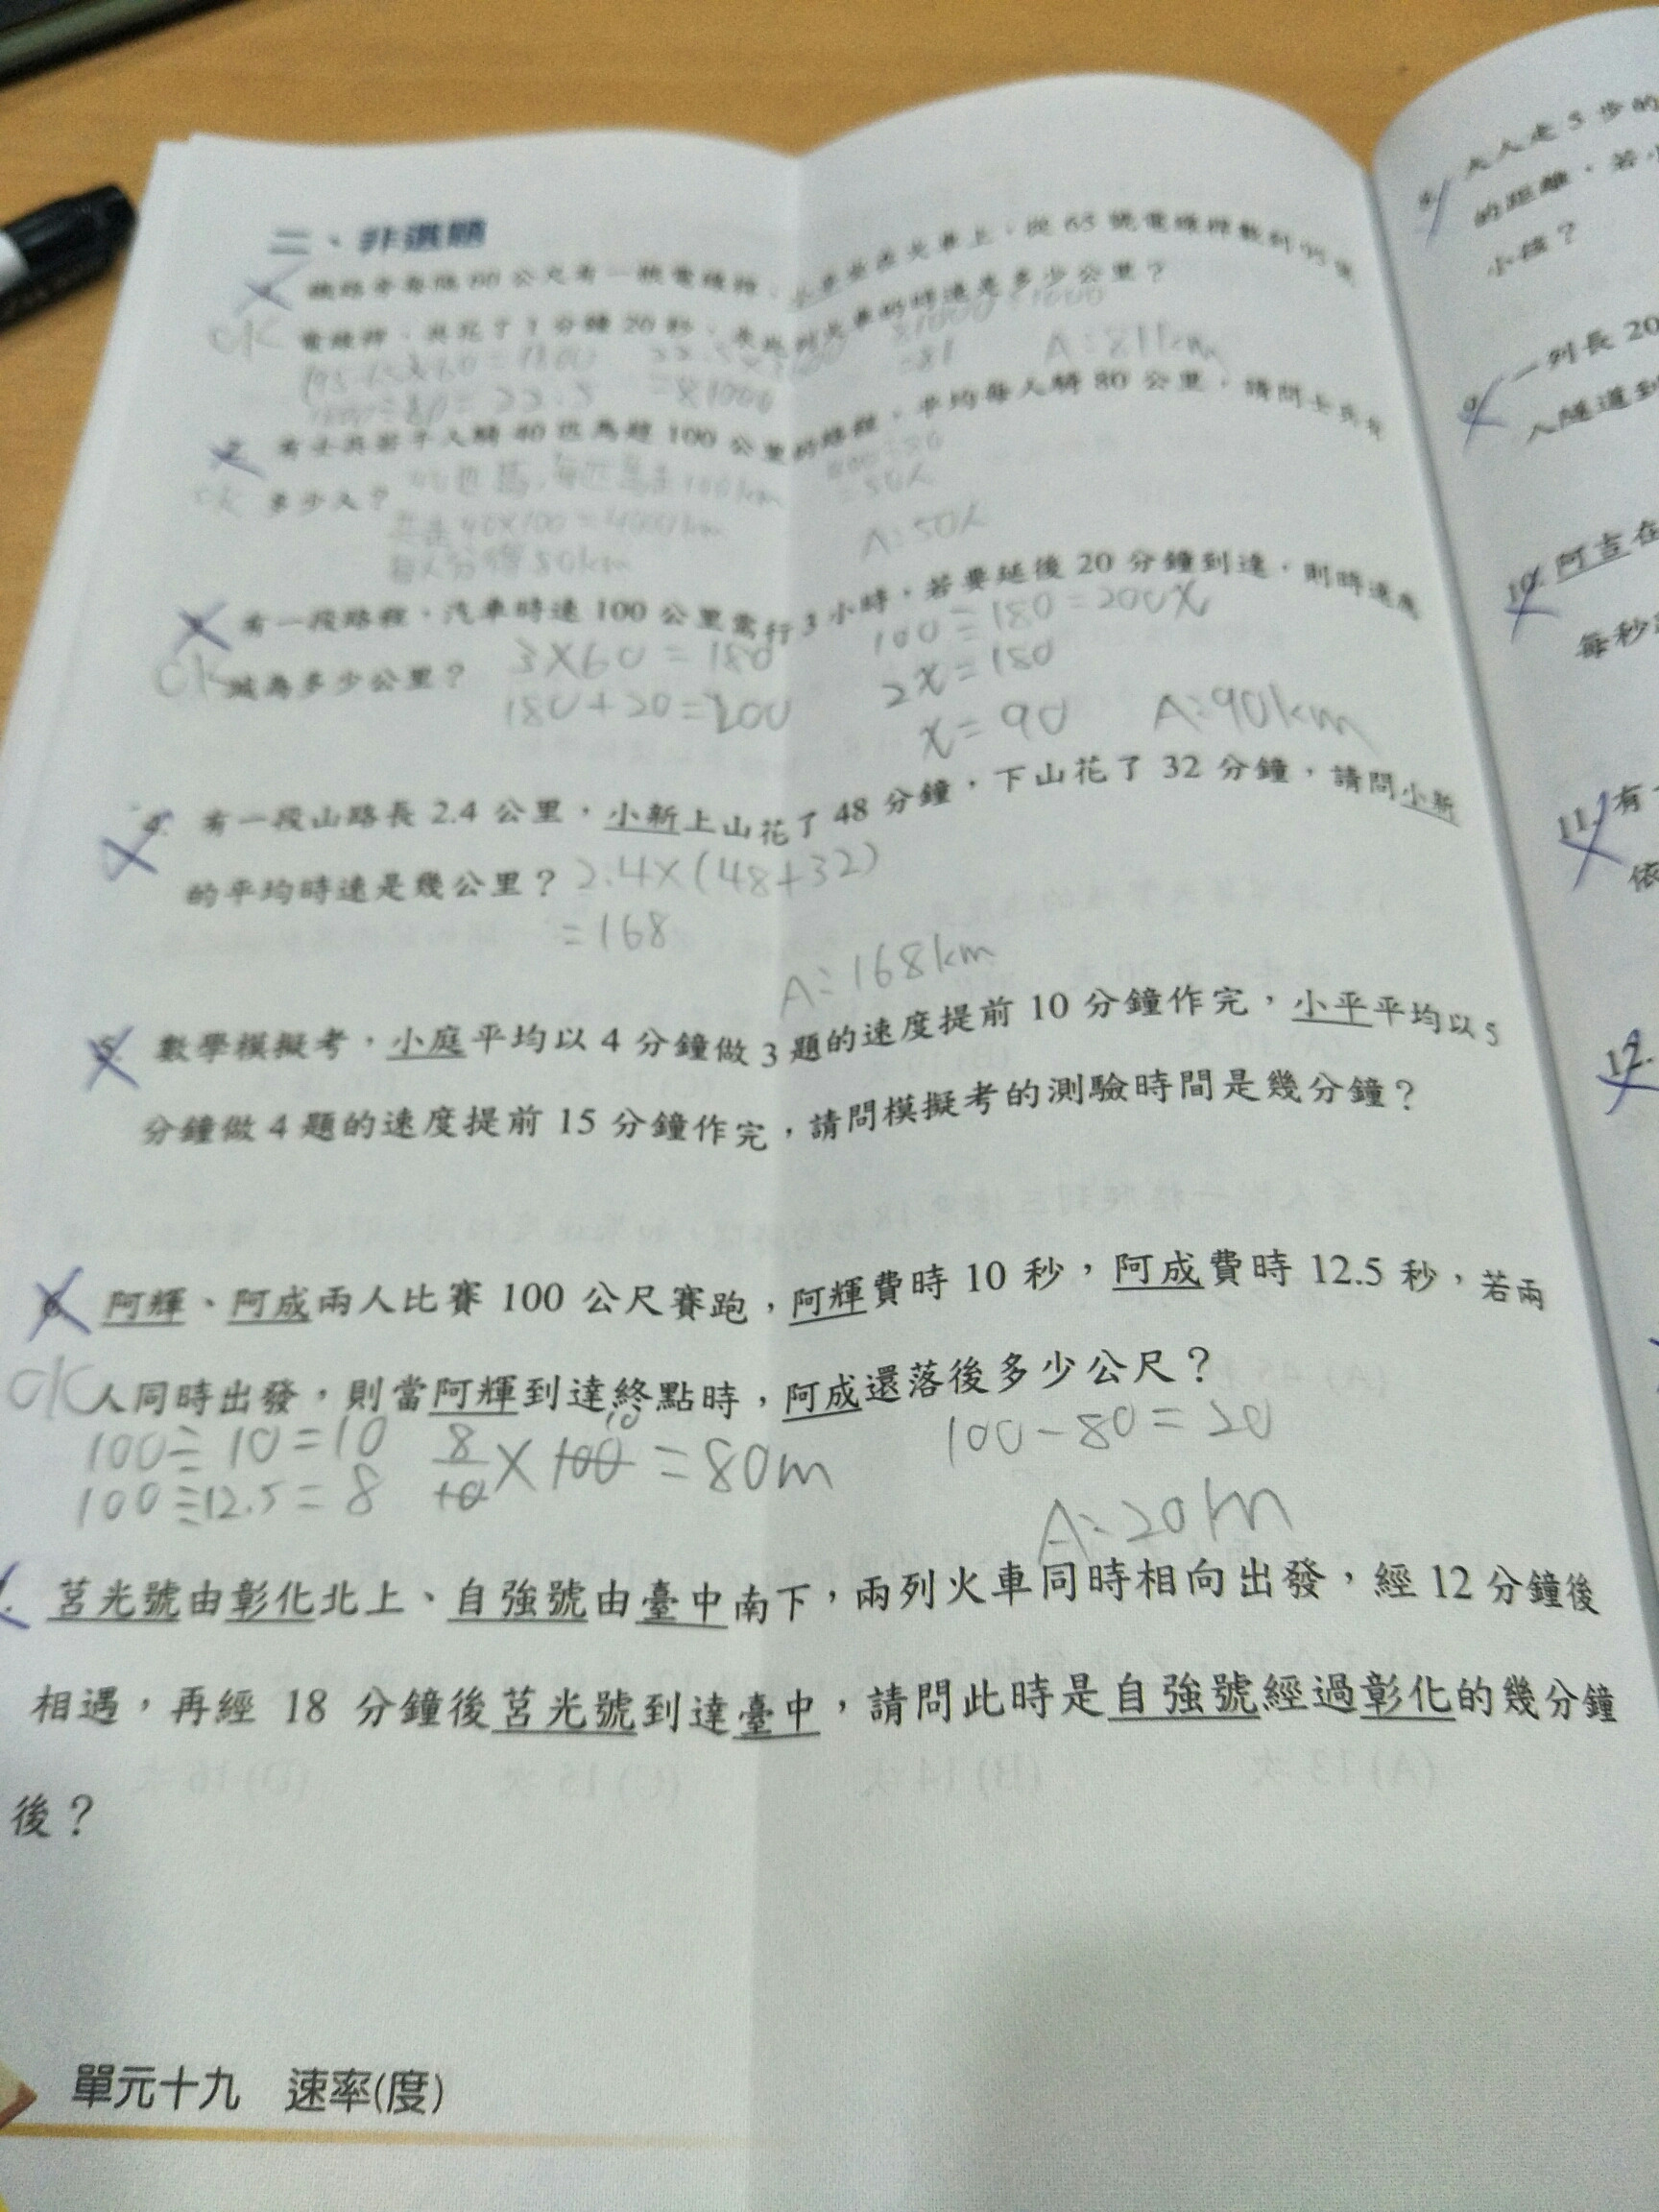 二、非選題
鐵路旁每隔60公尺有一根電線桿,小意坐在火車上,從65號電線桿數到95號
電線桿,共花了1分鐘20秒,
列火車的時速是多少公里?
OK
=1800
81000÷1000
=81
A:81km
=22.5
=81000
人騎40匹馬趕100公里的路程,平均每人騎80公里,請問士兵有
多少人?
OK
40匹馬,每匹馬走100km
共走40X100=4000km
每人分得80km
=50人
A:50人
有一段路程,汽車時速100公里需行3小時,若要延後20分鐘到達,則時速應
減為多少公里?
OK
3X60=180
180+20=200
100÷180=200X
2X=180
X=90
A:90km
4. 有一段山路長2.4公里,小新上山花了48分鐘,下山花了32分鐘,請問小新
的平均時速是幾公里?
2.4X(48+32)
=168
A:168km
5. 數學模擬考,小庭平均以4分鐘做3題的速度提前10分鐘作完,小平平均以5
分鐘做4題的速度提前15分鐘作完,請問模擬考的測驗時間是幾分鐘?
6. 阿輝、阿成兩人比賽100公尺賽跑,阿輝費時10秒,阿成費時12.5秒,若兩
OK
人同時出發,則當阿輝到達終點時,阿成還落後多少公尺?
100÷10=10
100÷12.5=8
8/10X100=80m
10
100-80=20
A:20m
莒光號由彰化北上、自強號由臺中南下,兩列火車同時相向出發,經12分鐘後
相遇,再經18分鐘後莒光號到達臺中,請問此時是自強號經過彰化的幾分鐘
後?
單元十九 速率(度)
大人走5步的
的距離,若小
小孩?
9. 一列長20
入隧道到
10. 阿吉在
每秒
11. 有
依
12.